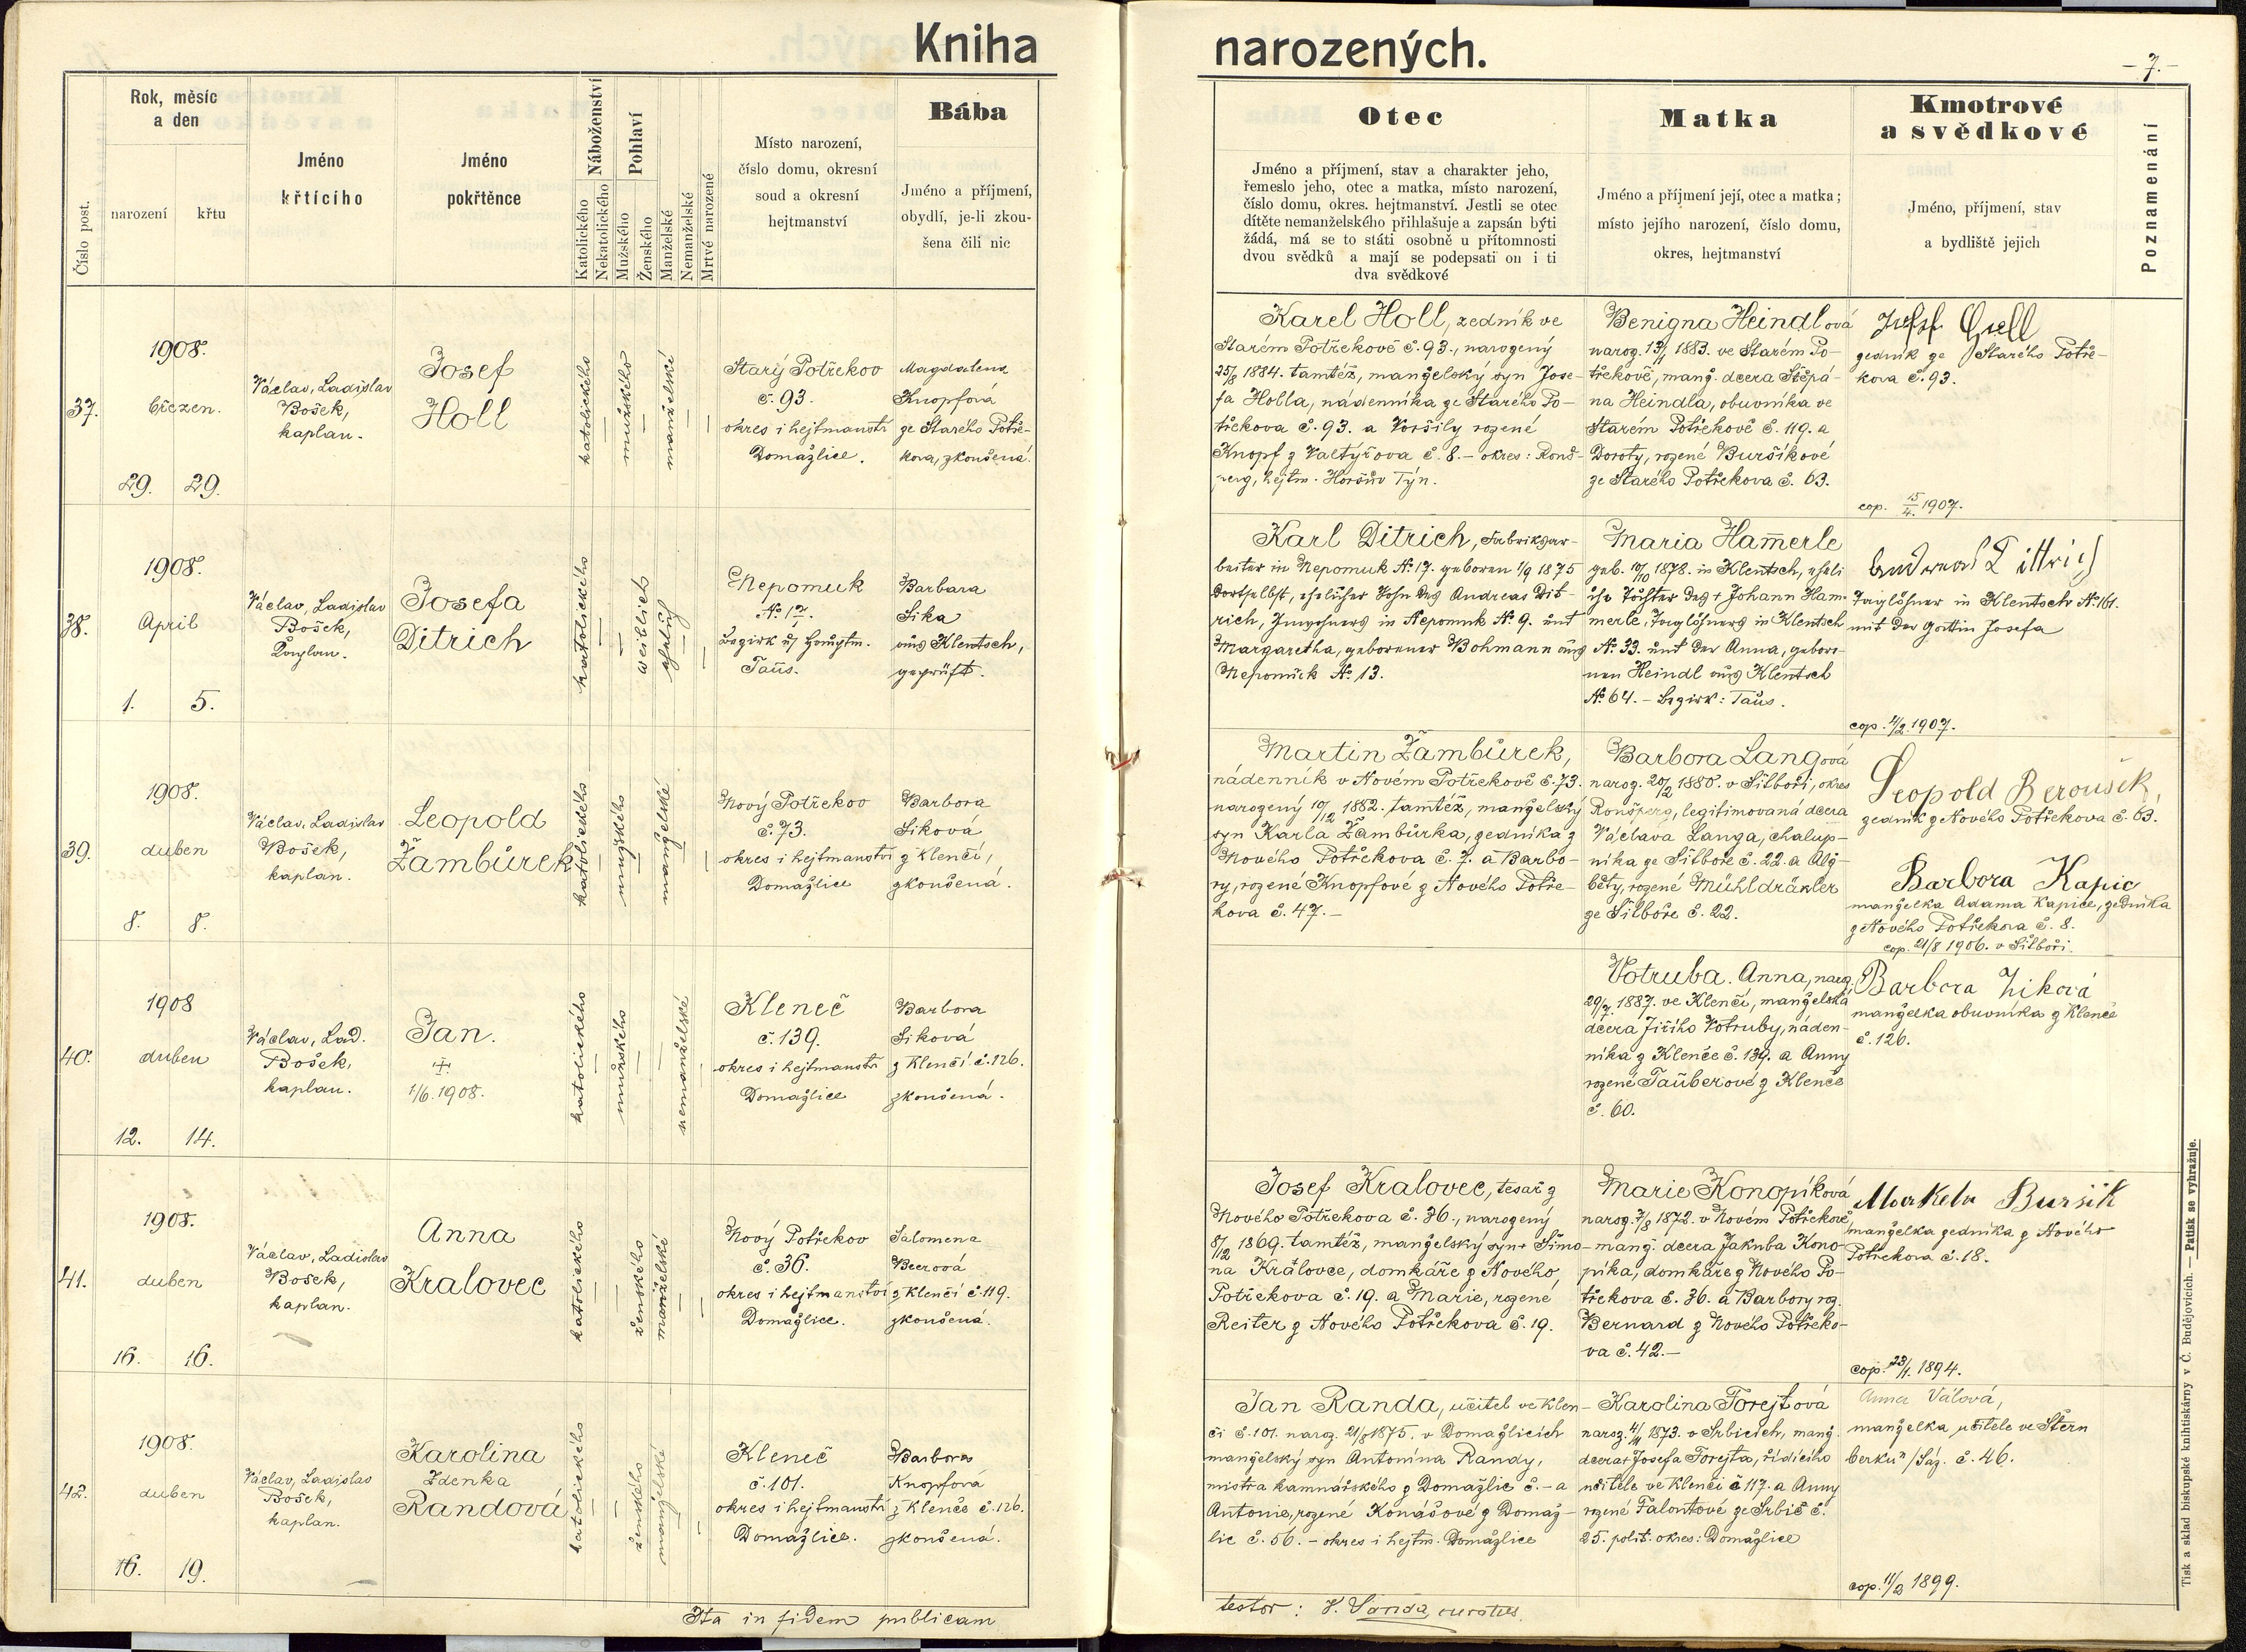 Kniha
narozených.
- 7. -
Číslo post.
Rok, měsíc
a den
narození
křtu
Jméno
křtícího
Jméno
pokřtěnce
Náboženství
Katolického
Nekatolického
Pohlaví
Mužského
Ženského
Manželské
Nemanželské
Mrtvé narozené
Místo narození,
číslo domu, okresní
soud a okresní
hejtmanství
Bába
Jméno a příjmení,
obydlí, je-li zkou-
šena čili nic
Otec
Jméno a příjmení, stav a charakter jeho,
řemeslo jeho, otec a matka, místo narození,
číslo domu, okres. hejtmanství. Jestli se otec
dítěte nemanželského přihlašuje a zapsán býti
žádá, má se to státi osobně u přítomnosti
dvou svědků a mají se podepsati on i ti
dva svědkové
Matka
Jméno a příjmení její, otec a matka;
místo jejího narození, číslo domu,
okres, hejtmanství
Kmotrové
a svědkové
Jméno, příjmení, stav
a bydliště jejich
Poznamenání
37.
1908.
březen.
29.
29.
Václav, Ladislav
Bošek,
kaplan.
Josef
Holl
katolického
mužského
manželské
Starý Potřekov
č. 93.
okres i hejtmanství
Domažlice.
Magdalena
Knopfová
ze Starého Potře-
kova, zkoušená.
Karel Holl, zedník ve
Starém Potřekově č. 93., narozený
25/8 1884. tamtéž, manželský syn Jose-
fa Holla, nádenníka ze Starého Po-
třekova č. 93. a Voršily rozené
Knopf z Valtýřova č. 8. - okres: Rons-
perg, hejtm. Horšův Týn.
Benigna Heindlová
naroz. 13/1 1883. ve Starém Po-
třekově, manž. dcera Štěpá-
na Heindla, obuvníka ve
Starém Potřekově č. 119. a
Doroty, rozené Buršíkové
ze Starého Potřekova č. 63.
Josef
zedník ze Starého Potře-
kova č. 93.
cop. 15/4. 1907.
38.
1908.
April
1.
5.
Václav, Ladislav
Bošek,
Kaplan.
Josefa
Ditrich
katolického
weiblich
ehelich
Nepomuk
№ 17.
Bezirk u. Hauptm.
Taus.
Barbara
Sika
aus Klentsch,
geprüft.
Karl Ditrich, Fabriksar-
beiter in Nepomuk № 17. geboren 1/9 1875
dortselbst, ehelicher Sohn des Andreas Dit-
rich, Inwohners in Nepomuk № 9. und
Margaretha, geborener Bohmann aus
Nepomuk № 13.
Maria Ham̅erle
geb. 10/10 1878. in Klentsch, eheli
che Tochter des † Johann Ham-
merle, Taglöhners in Klentsch
№ 33. und der Anna, gebore-
nen Heindl aus Klentsch
№ 64. - Bezirk: Taus.
Andreas Dittrich
Taglöhner in Klentsch № 161.
mit der Gattin Josefa
cop. 4/2. 1907.
39.
1908.
duben
8.
8.
Václav, Ladislav
Bošek,
kaplan.
Leopold
Žambůrek
katolického
mužského
manželské
Nový Potřekov
č. 73.
okres i hejtmanství
Domažlice
Barbora
Siková
z Klenčí,
zkoušená.
Martin Žambůrek,
nádenník v Novém Potřekově č. 73.
narozený 10/12 1882. tamtéž, manželský
syn Karla Žambůrka, zedníka z
Nového Potřekova č. 7. a Barbo-
ry, rozené Knopfové z Nového Potře-
kova č. 47. -
Barbora Langová
naroz. 20/2 1880. v Šilboři, okres
Ronšperg, legitimovaná dcera
Václava Langa, chalup-
níka ze Šilboře č. 22. a Alž-
běty, rozené
ze Šilboře č. 22.
Leopold Beroušek,
zedník z Nového Potřekova č. 63.
Barbora Kapic
manželka Adama Kapice, zedníka
z Nového Potřekova č. 8.
cop. 21/8 1906. v Šilboři.
40.
1908
duben
12.
14.
Václav, Lad.
Bošek,
kaplan.
Jan.
†
1/6. 1908.
katolického
mužského
nemanželské
Kleneč
č. 139.
okres i hejtmanství
Domažlice
Barbora
Siková
z Klenčí č. 126.
zkoušená.
Votruba Anna, naroz.
29/7. 1887. ve Klenčí, manželská
dcera Jiřího Votruby, náden-
níka z Klenče č. 139. a Anny
rozené Tauberové z Klenče
č. 60.
Barbora Ziková
manželka obuvníka z Klenče
č. 126.
41.
1908.
duben
16.
16.
Václav, Ladislav
Bošek,
kaplan.
Anna
Kralovec
katolického
ženského
manželské
Nový Potřekov
č. 36.
okres i hejtmanství
Domažlice.
Salomena
Beerová
z Klenčí č. 119.
zkoušená.
Josef Kralovec, tesař z
Nového Potřekova č. 36., narozený
8/12 1869. tamtéž, manželský syn † Šimo-
na Královce, domkáře z Nového
Potřekova č. 19. a Marie, rozené
Reiter z Nového Potřekova č. 19.
Marie Konopíková
naroz. 7/8 1872. v Novém Potřekově,
manž. dcera Jakuba Kono-
píka, domkáře z Nového Po-
třekova č. 36. a Barbory roz.
Bernard z Nového Potřeko-
va č. 42. -
Markeda Buršik
manželka zedníka z Nového
Potřekova č. 18.
cop. 23/1. 1894.
42.
1908.
duben
16.
19.
Václav, Ladislav
Bošek,
kaplan.
Karolina
Zdenka
Randová
katolického
ženského
manželské
Kleneč
č. 101.
okres i hejtmanství
Domažlice.
Barbora
Knopfová
z Klenče č. 126.
zkoušená.
Jan Randa, učitel ve Klen-
čí č. 101. naroz. 21/8 1875. v Domažlicích
manželský syn Antonína Randy,
mistra kamnářského z Domažlic č. - a
Antonie, rozené Konášové z Domaž-
lic č. 56. - okres i hejtm. Domažlice
Karolina Forejtová
naroz. 4/11 1873. v Srbicích, manž.
dcera † Josefa Forejta, řídícího
učitele ve Klenčí č 117. a Anny
rozené Falontové ze Srbic č.
25. polit. okres: Domažlice
Anna Válová,
manželka učitele ve Štern
berku n/Sáz. č. 46.
cop. 11/2 1899.
Ita in fidem publicam
testor: V. Vanda, curatus.
Tisk a sklad biskupské knihtiskárny v Č. Budějovicích. — Patisk se vyhražuje.